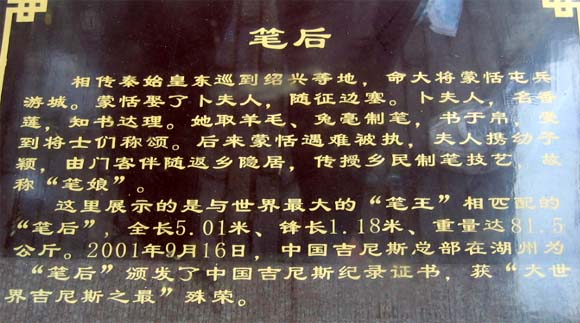 笔后
相传秦始皇东巡到绍兴等地，命大将蒙恬屯兵
游城。蒙恬娶了卜夫人，随征边塞。卜夫人，名香
莲，知书达理。她取羊毛、兔毫制笔，书于帛，受
到将士们称颂。后来蒙恬遇难被执，夫人携幼子
颖，由门客伴随返乡隐居，传授乡民制笔技艺，故
称“笔娘”。
这里展示的是与世界最大的“笔王”相匹配的
“笔后”，全长5.01米、锋长1.18米、重量达81.5
公斤。2001年9月16日，中国吉尼斯总部在湖州为
“笔后”颁发了中国吉尼斯纪录证书，获“大世
界吉尼斯之最”殊荣。